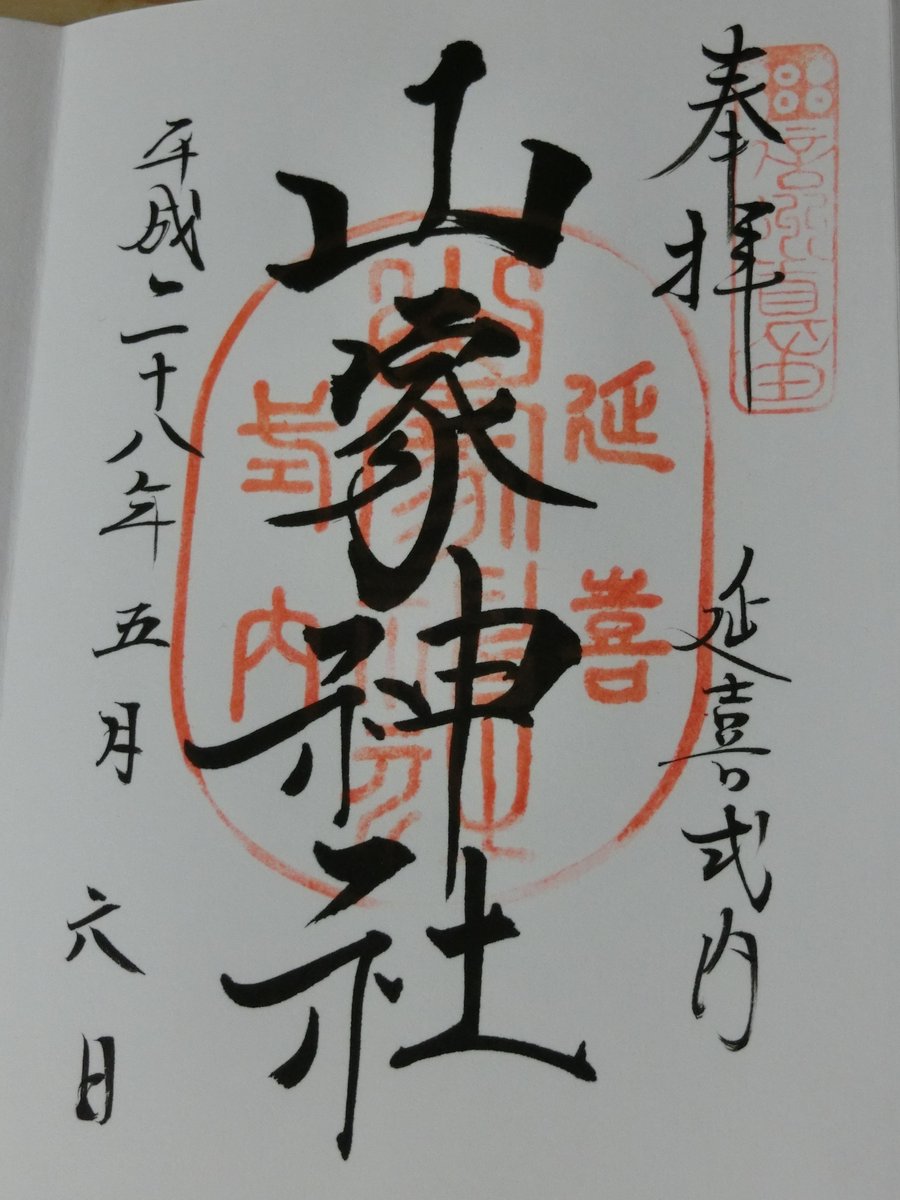 奉拝
延喜式内
山家神社
延喜
式内
平成二十八年五月六日